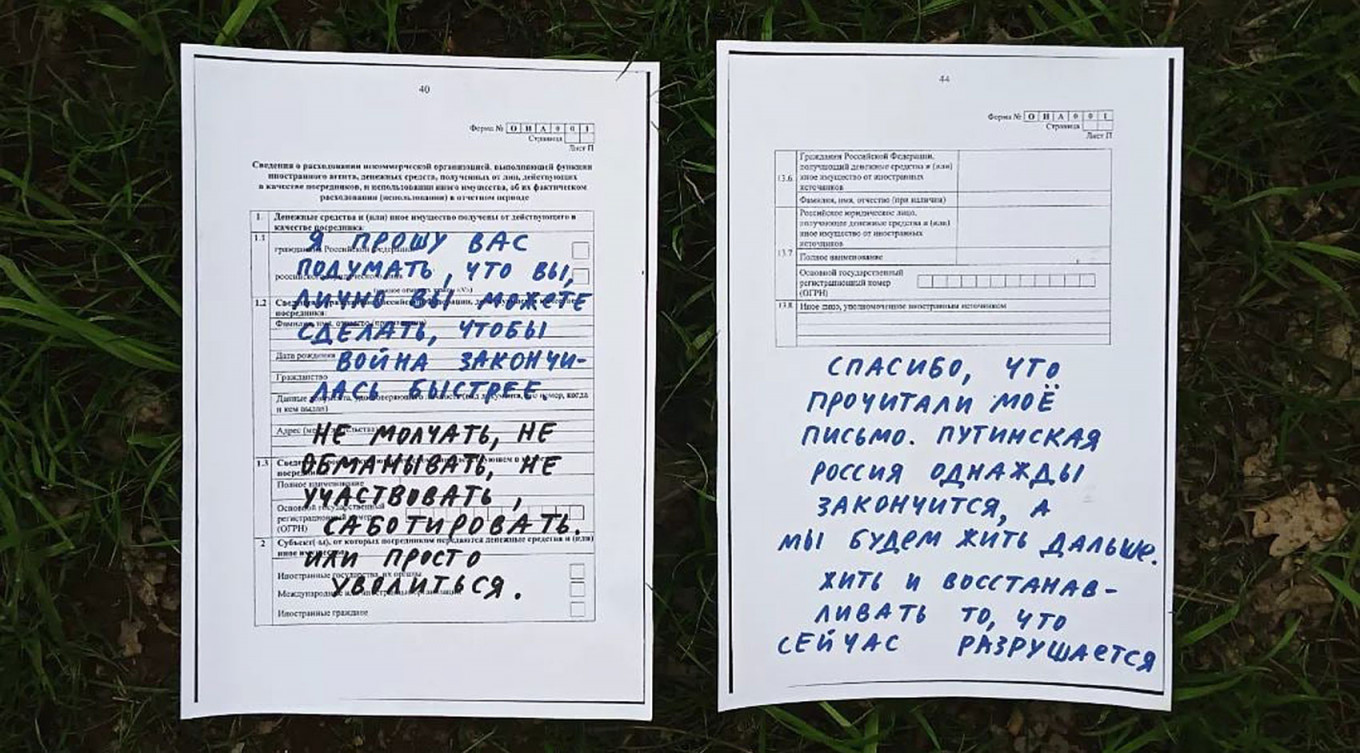 40
Форма № О И А 0 0 1
Страница
Лист П
Сведения о расходовании некоммерческой организацией, выполняющей функции
иностранного агента, денежных средств, полученных от лиц, действующих
в качестве посредников, и использовании иного имущества, об их фактическом
расходовании (использовании) в отчетном периоде
1. Денежные средства и (или) иное имущество получены от действующего в
качестве посредника:
1.1
Я ПРОШУ ВАС
гражданина Российской Федерации
ПОДУМАТЬ, ЧТО ВЫ,
1.2
ЛИЧНО ВЫ МОЖЕТЕ
посредника:
СДЕЛАТЬ, ЧТОБЫ
Дата рождения
ВОЙНА ЗАКОНЧИ-
Гражданство
ЛАСЬ БЫСТРЕЕ.
и кем выдан)
НЕ МОЛЧАТЬ, НЕ
1.3
ОБМАНЫВАТЬ, НЕ
Полное наименование
УЧАСТВОВАТЬ,
Основной государственный
регистрационный номер
(ОГРН)
САБОТИРОВАТЬ.
2 Субъект(-ы), от которых посредником передаются денежные средства и (или)
иное имущество
ИЛИ ПРОСТО
Иностранные государства, их органы
УВОЛИТЬСЯ.
Иностранные граждане
44
Форма № О И А 0 0 1
Страница
Лист П
13.6 Гражданин Российской Федерации,
получающий денежные средства и (или)
иное имущество от иностранных
источников
Фамилия, имя, отчество (при наличии)
13.7 Российское юридическое лицо,
получающее денежные средства и (или)
иное имущество от иностранных
источников
Полное наименование
Основной государственный
регистрационный номер
(ОГРН)
13.8 Иное лицо, уполномоченное иностранным источником
СПАСИБО, ЧТО
ПРОЧИТАЛИ МОЁ
ПИСЬМО. ПУТИНСКАЯ
РОССИЯ ОДНАЖДЫ
ЗАКОНЧИТСЯ, А
МЫ БУДЕМ ЖИТЬ ДАЛЬШЕ.
ЖИТЬ И ВОССТАНАВ-
ЛИВАТЬ ТО, ЧТО
СЕЙЧАС РАЗРУШАЕТСЯ